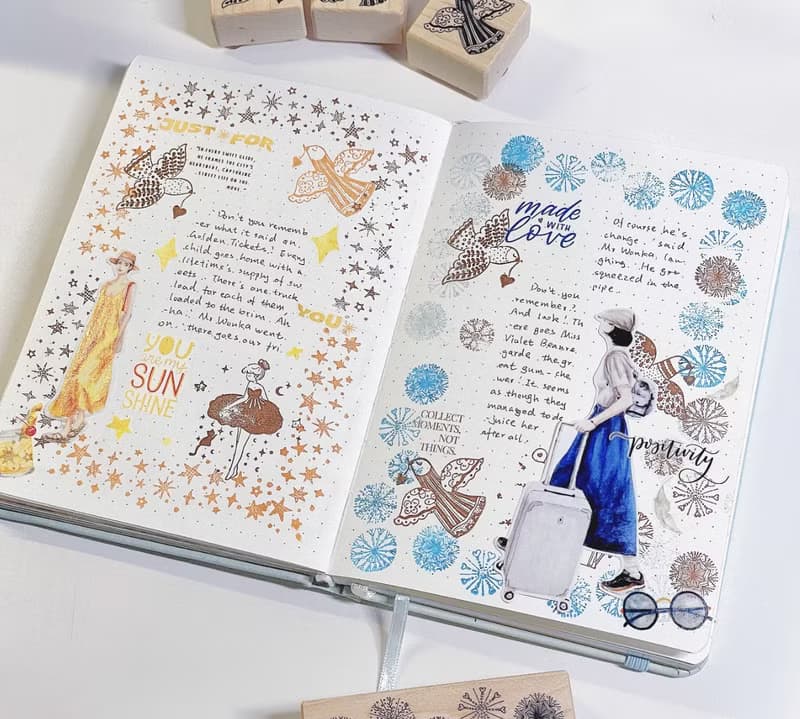 JUST FOR
"IN EVERY SWIFT GLIDE,
HE FRAMES THE CITY'S
HEARTBEAT, CAPTURING
STREET LIFE ON THE
MOVE."
Don't you rememb
-er what it said on
Golden Tickets! Every
child goes home with a
lifetime's supply of sw
eets. There's one truck
load for each of them
loaded to the brim. Ah
-ha. Mr Wonka went
on. there goes our fri
YOU
YOU
are my
SUN
SHINE
made
WITH
love
Don't you
remember?
And look! Th
-ere goes Miss
Violet Beaure
garde, the gr
eat gum-che
wer! It seems
as though they
managed to de
-juice her
after all.
Of course he's
change. said
Mr Wonka, lau
ghing. He got
squeezed in the
pipe.
COLLECT
MOMENTS,
NOT
THINGS.
positivity